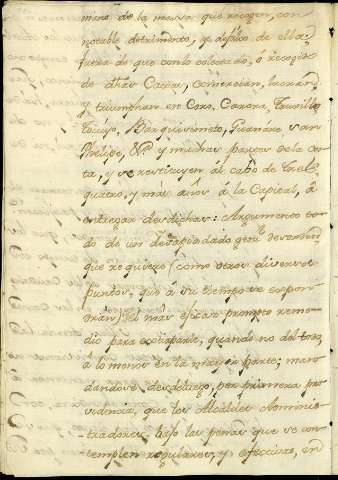 mano de la massa que recogen, con
notable detrimento, y
fuerza de que con lo colectado, ó recogido
de dhas Caxas, comercian, lucran
y triumphan en Coro, Carora, Truxillo
Tocuyo, Barquisimeto, Guanare, San
Phelipe, &a y muchas partes de la cos
ta, y se restituyen al cabo de tres,
quatro, y más años á la Capital, á
entregar desdichas: Argumento to
do de un desapiadado genl desorden
que requiere (como otros diversos
puntos, que á su tiempo se expon
dran) el más eficaz prompto reme
dio para extraparle, quando no del todo,
a lo menos en la mayor parte; man
dandose desde luego, por primera pro
videncia, que los Alcaldes Adminis
tradores, bajo las penas que se con
templen regulares, y efectivas, en